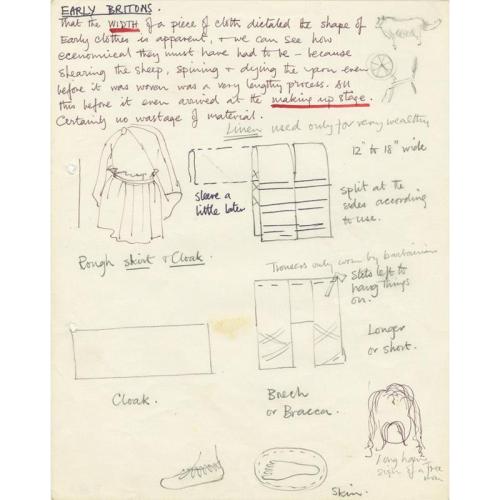 EARLY BRITONS.
That the WIDTH of a piece of cloth dictated the shape of
Early clothes is apparent, & we can see how
economical they must have had to be – because
shearing the sheep, spining & dying the yarn even
before it was woven was a very lengthy process. All
this before it even arrived at the making up stage.
Certainly no wastage of material.
Linen used only for very wealthy
12" to 18" wide
sleeve a
little later
split at the
sides according
to use.
Rough skirt & Cloak.
Trousers only worn by barbarians
Slits left to
hang things
on.
Longer
or short.
Cloak.
Brech
or Bracca.
Long hair
sign of a free
man
Skin.